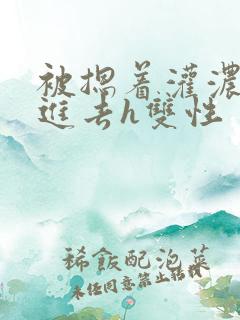 被摁着灌浓
进去h双性
稀飯配泡菜
未经同意禁止转载